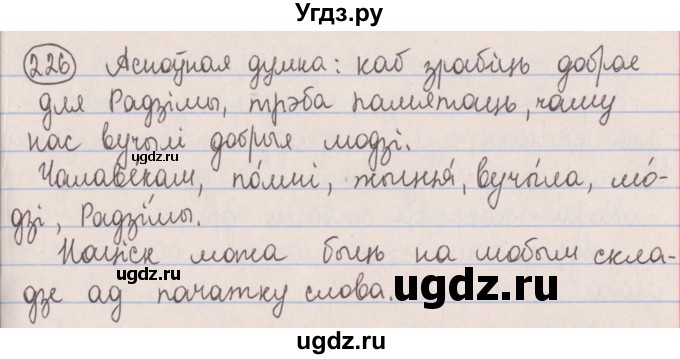 Угдз.ру
226 Асноўная думка: каб зрабіць добрае
для Радзімы, трэба памятаць, чаму
нас вучылі добрыя людзі.
Чалаве́кам, по́мні, жыцця́, вучы́ла, лю́-
дзі, Радзі́мы.
Націск можа быць на любым скла-
дзе ад пачатку слова.
ugdz.ru
ugdz.ru
ugdz.ru
ugdz.ru
ugdz.ru
ugdz.ru
Угдз.ру